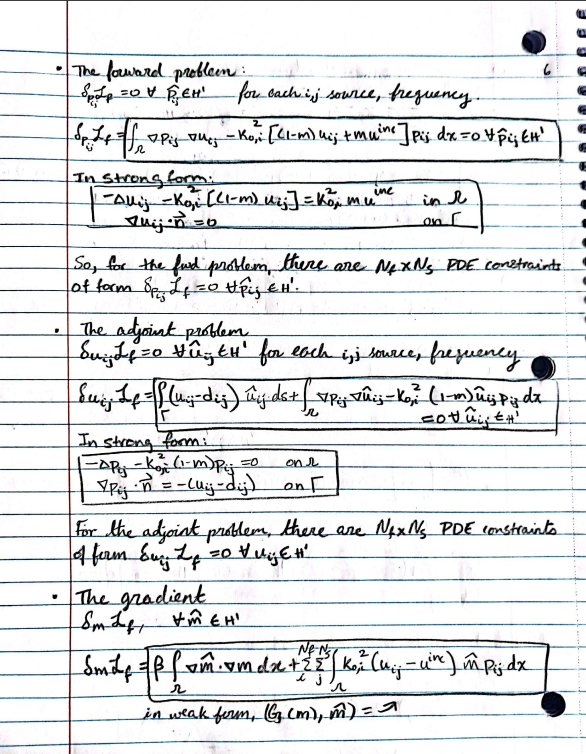 6
• The forward problem:
δ_{p_ij} ℒ_f = 0 ∀ p̂_ij ∈ H' for each i,j source, frequency.
δ_{p_ij} ℒ_f = ∫_Ω ∇p_ij ∇u_ij - K_{0,i}^2 [(1-m) u_ij + m u^inc] p_ij dx = 0 ∀ p̂_ij ∈ H'
In strong form:
-Δu_ij - K_{0,i}^2 [(1-m) u_ij] = K_{0,i}^2 m u^inc in Ω
∇u_ij · n⃗ = 0 on Γ
So, for the fwd problem, there are N_f x N_s PDE constraints
of form δ_{p_ij} ℒ_f = 0 ∀ p̂_ij ∈ H'.
• The adjoint problem
δ_{u_ij} ℒ_f = 0 ∀ û_ij ∈ H' for each i,j source, frequency
δ_{u_ij} ℒ_f = ∫_Γ (u_ij - d_ij) û_ij ds + ∫_Ω ∇p_ij ∇û_ij - K_{0,i}^2 (1-m) û_ij p_ij dx
= 0 ∀ û_ij ∈ H'
In strong form:
-Δp_ij - K_{0,i}^2 (1-m) p_ij = 0 on Ω
∇p_ij · n⃗ = -(u_ij - d_ij) on Γ
For the adjoint problem, there are N_f x N_s PDE constraints
of form δ_{u_ij} ℒ_f = 0 ∀ u_ij ∈ H'
• The gradient
δ_m ℒ_f, ∀ m̂ ∈ H'
δ_m ℒ_f = β ∫_Ω ∇m̂ · ∇m dx + Σ_i^{N_f} Σ_j^{N_s} ∫_Ω K_{0,i}^2 (u_ij - u^inc) m̂ p_ij dx
in weak form, (G(m), m̂) = ↗